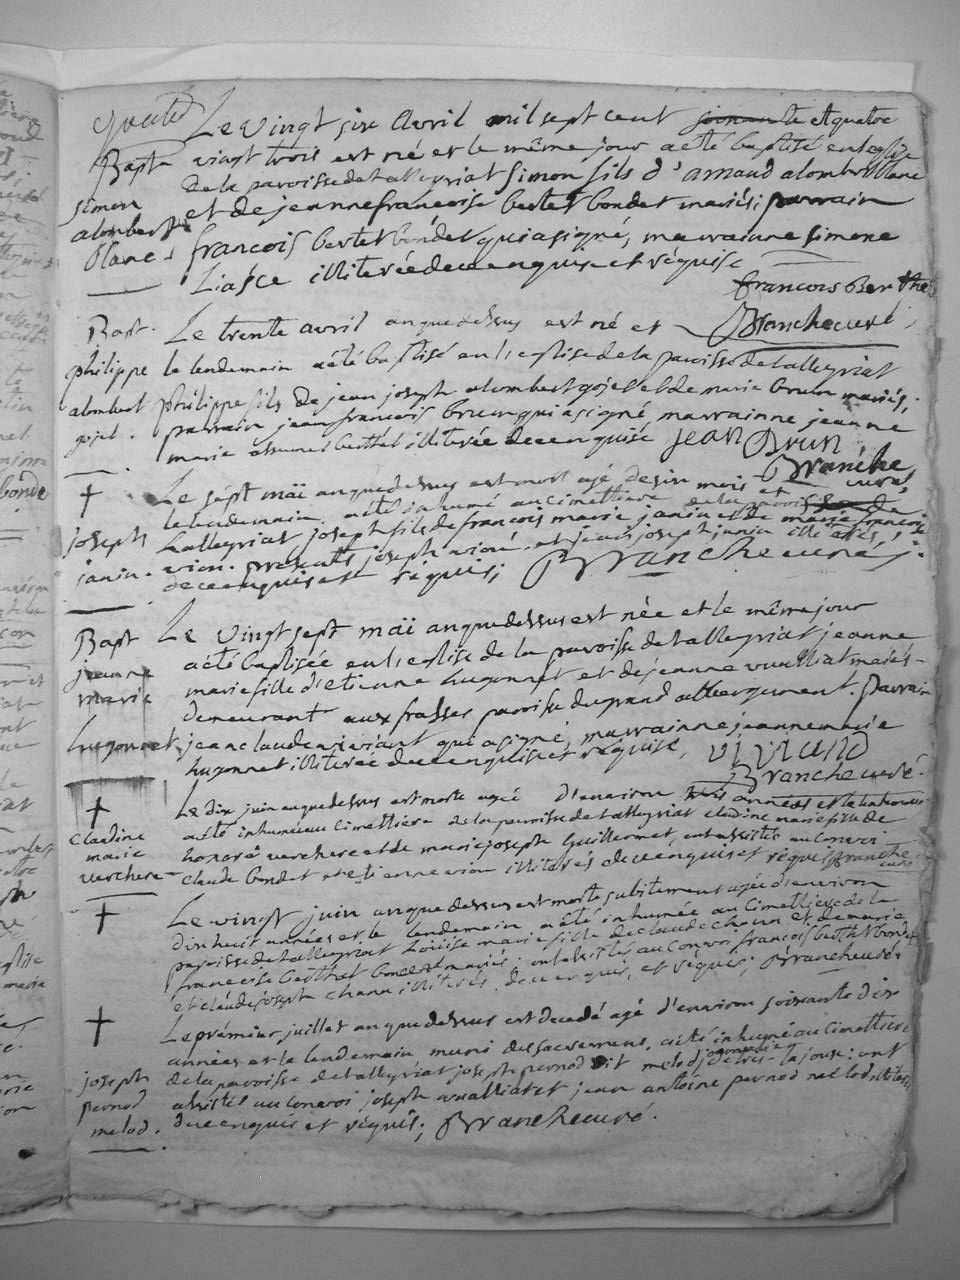 Le vingt six avril mil sept cent soixante et quatre
Bapt vingt trois est né et le même jour a été baptisé en leglise
de la paroisse de talleyriat simon fils d'amaud alombert blanc
simon
et de jeanne francoise bertet bondet mariés; parrain
alombert
blanc francois bertet bondet qui a signé, marrainne simone
Liasce illiterée de ce enquise et réquise
francois Berthet
Branche curé
Bapt. Le trente avril an que dessus est né et
philippe le lendemain a été baptisé en l'eglise de la paroisse de talleyriat
alombert philippe fils de jean joseph alombert gojet et de marie brun mariés;
gojet. parrain jean francois brun qui a signé marrainne jeanne
marie bertet illiterée de ce enquise jean Brun
Branche curé
† Le sept maï an que dessus est mort agé de six mois et
le lendemain a été inhumé au cimettière de la paroisse de
joseph talleyriat joseph fils de francois marie janin et de marie francoise
janin. vion. presents joseph vion et jean joseph janin illiterés,
de ce enquis et réquis; Branche curé;
Bapt Le vingt sept maï an que dessus est née et le même jour
jeanne a été baptisée en l'eglise de la paroisse de talleyriat jeanne
marie marie fille d'etienne hugonnet et de jeanne vualliat mariés
demeurant aux frasses paroisse du grand abbergement. Parrain
hugonnet jean claude viviant qui a signé, marrainne jeanne marie
hugonnet illiterée de ce enquise et réquise, viviand
Branche curé.
† Le dix juin an que dessus est morte agée d'environ trois années et le lendemain
Claudine a été inhumée au cimettière de la paroisse de talleyriat claudine marie fille de
marie honoré verchere et de marie joseph Guillermet, ont assistés au convoi
verchere claude bondet et etienne vion illiterés de ce enquis et réquis Branche
curé
† Le vingt juin an que dessus est morte subitement agée d'environ
dix huit années et le lendemain a été inhumée au cimettière de la
paroisse de talleyriat Louise marie fille de claude charn et de marie
francoise berthet bondet mariés; ont assistés au convoi francois berthet bondet
et claude joseph charn illiterés, de ce enquis, et réquis; Branche curé.
† Le prémier juillet an que dessus est decedé agé d'environ soixante dix
années et le lendemain muni des sacremens, a été inhumé au cimettière
joseph de la paroisse de talleyriat joseph pernod dit melod la joux; ont
pernod assistés au convoi joseph vualliat et jean antoine pernod melod illiterés
melod. de ce enquis et réquis; Branche curé.